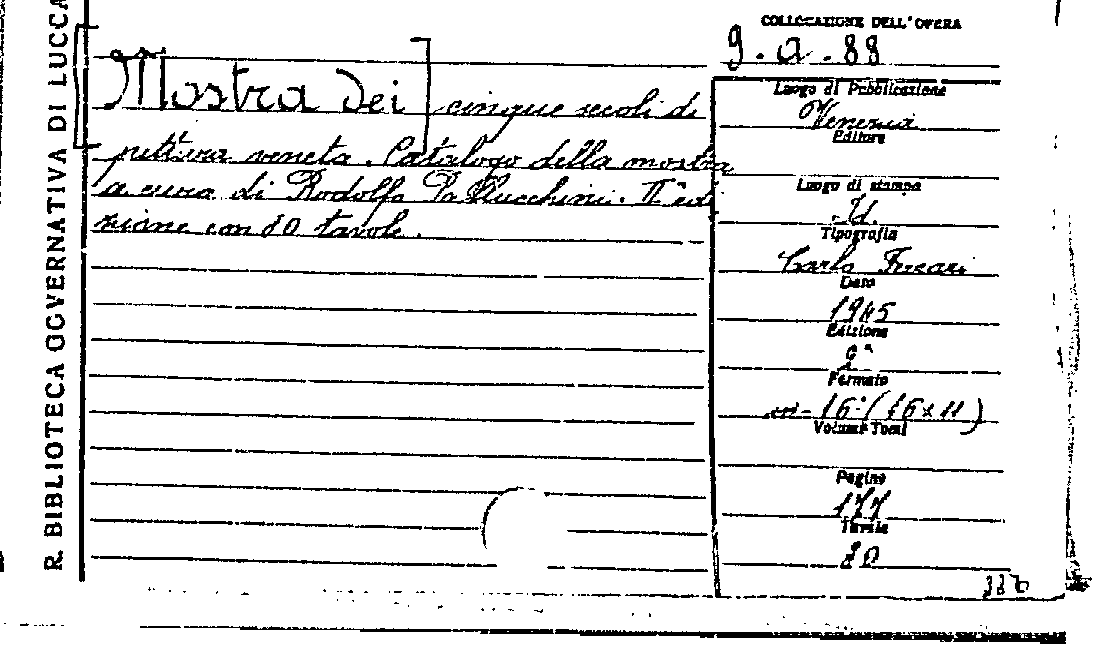 R. BIBLIOTECA GOVERNATIVA DI LUCCA
[Mostra dei] cinque secoli di
pittura veneta. Catalogo della mostra
a cura di Rodolfo Pallucchini. IIª edi
zione con 80 tavole.
COLLOCAZIONE DELL'OPERA
9.a.88
Luogo di Pubblicazione
Venezia
Editore
Luogo di stampa
Id.
Tipografia
Carlo Ferrari
Data
1945
Edizione
2ª
Formato
in-16°(16x11)
Volumi Tomi
Pagine
177
Tavole
80